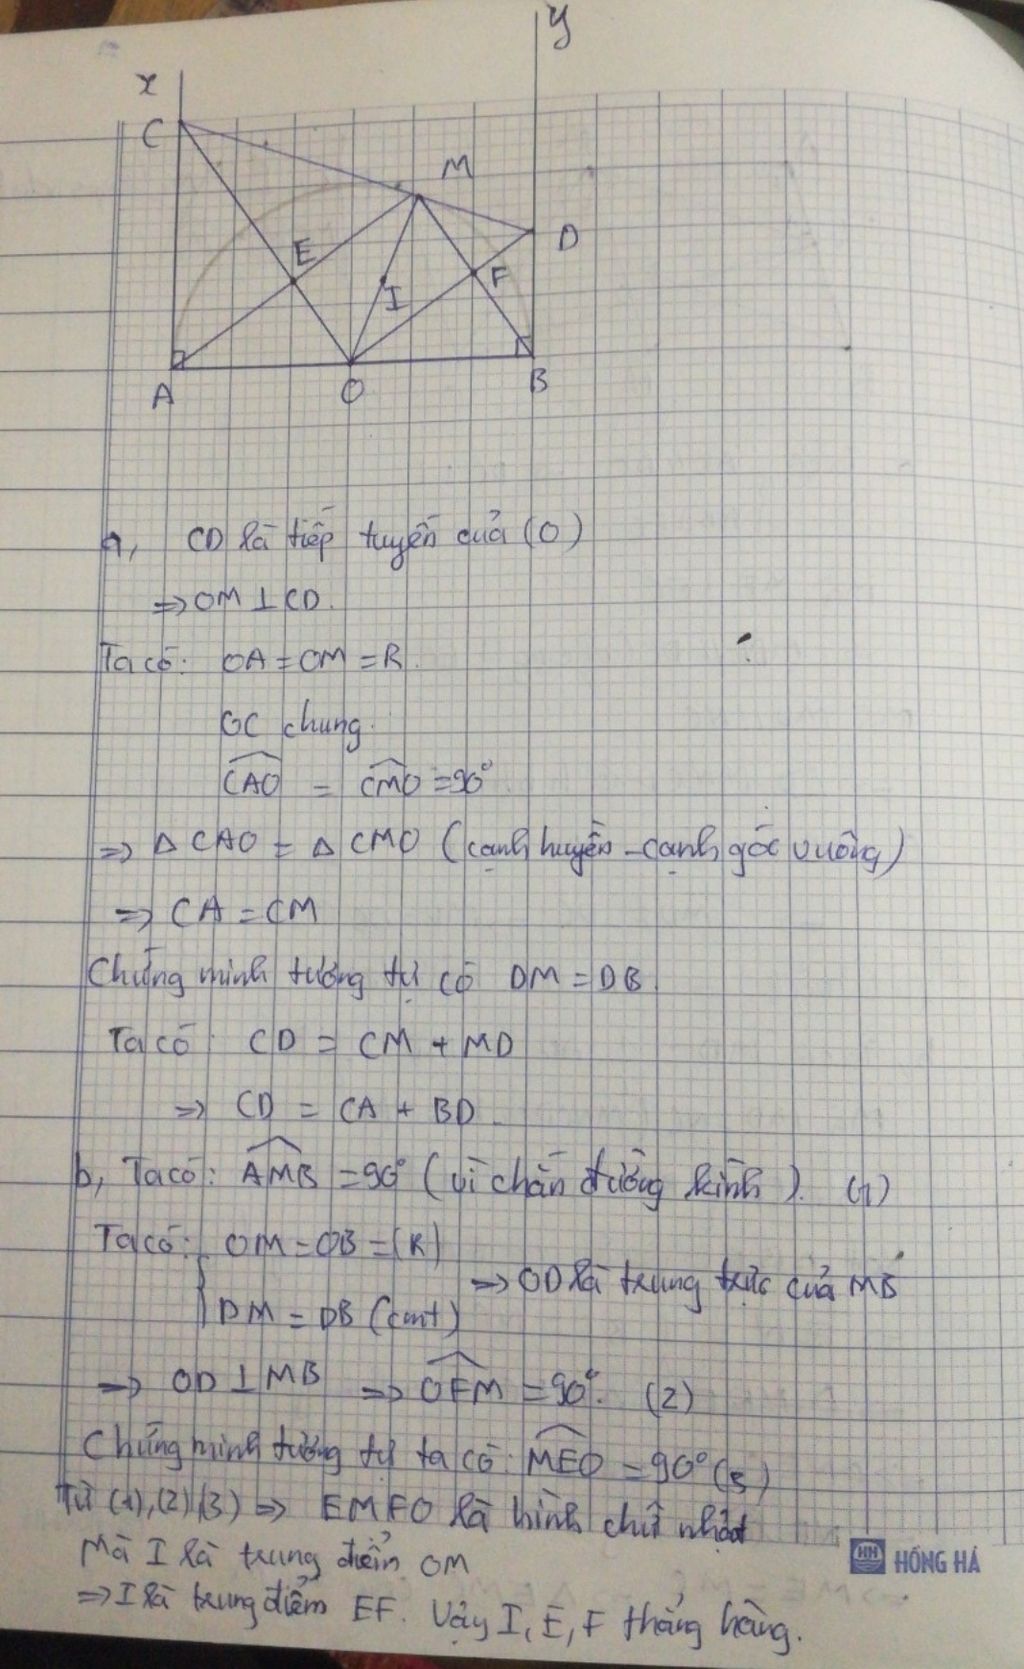 x
y
C
M
D
E
F
I
A
O
B
a, CD là tiếp tuyến của (O)
=> OM ⊥ CD.
Ta có: OA = OM = R.
OC chung.
\widehat{CAO} = \widehat{CMO} = 90°
=> Δ CAO = Δ CMO (cạnh huyền - cạnh góc vuông)
=> CA = CM
Chứng minh tương tự có DM = DB.
Ta có CD = CM + MD
=> CD = CA + BD.
b, Ta có: \widehat{AMB} = 90° (vì chắn đường kính). (1)
Ta có: { OM = OB = (R)
DM = DB (cmt)
=> OD là trung trực của MB
=> OD ⊥ MB => \widehat{OFM} = 90°. (2)
Chứng minh tương tự ta có: \widehat{MEO} = 90° (3)
Từ (1), (2), (3) => EMFO là hình chữ nhật
Mà I là trung điểm OM
=> I là trung điểm EF. Vậy I, E, F thẳng hàng.
HH HỒNG HÀ